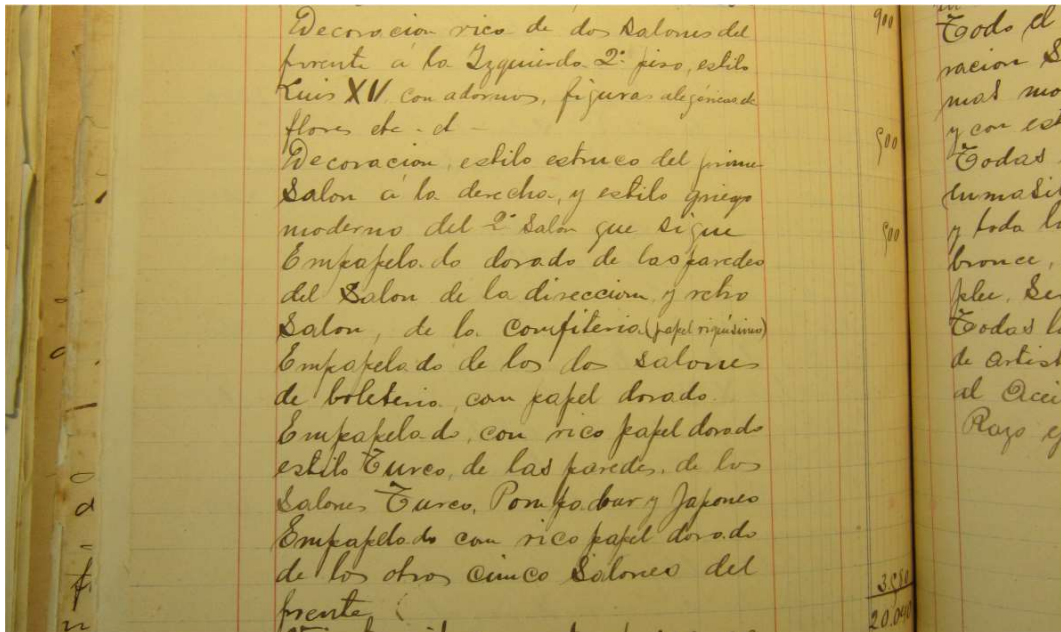 Decoracion rica de dos Salones del 900
frente á la Izquierda 2º piso, estilo
Luis XV con adornos, figuras alegóricas de
flores etc. et
Decoracion, estilo estruco del primer 500
Salon á la derecha, y estilo griego
moderno del 2º Salon que sigue 500
Empapelado dorado de las paredes
del Salon de la direccion y retro
Salon, de la Confiteria (papel riquísimo)
Empapelado de los dos Salones
de boleteria, con papel dorado.
Empapelado, con rico papel dorado
estilo Turco, de las paredes, de los
Salones Turco, Pompadour y Japones
Empapelado con rico papel dorado
de los otros Cinco Salones del
frente
Todo el
racion
mas mo
y con est
Todas
y toda l
bronce,
Todas l
de artist
al
Rayo y